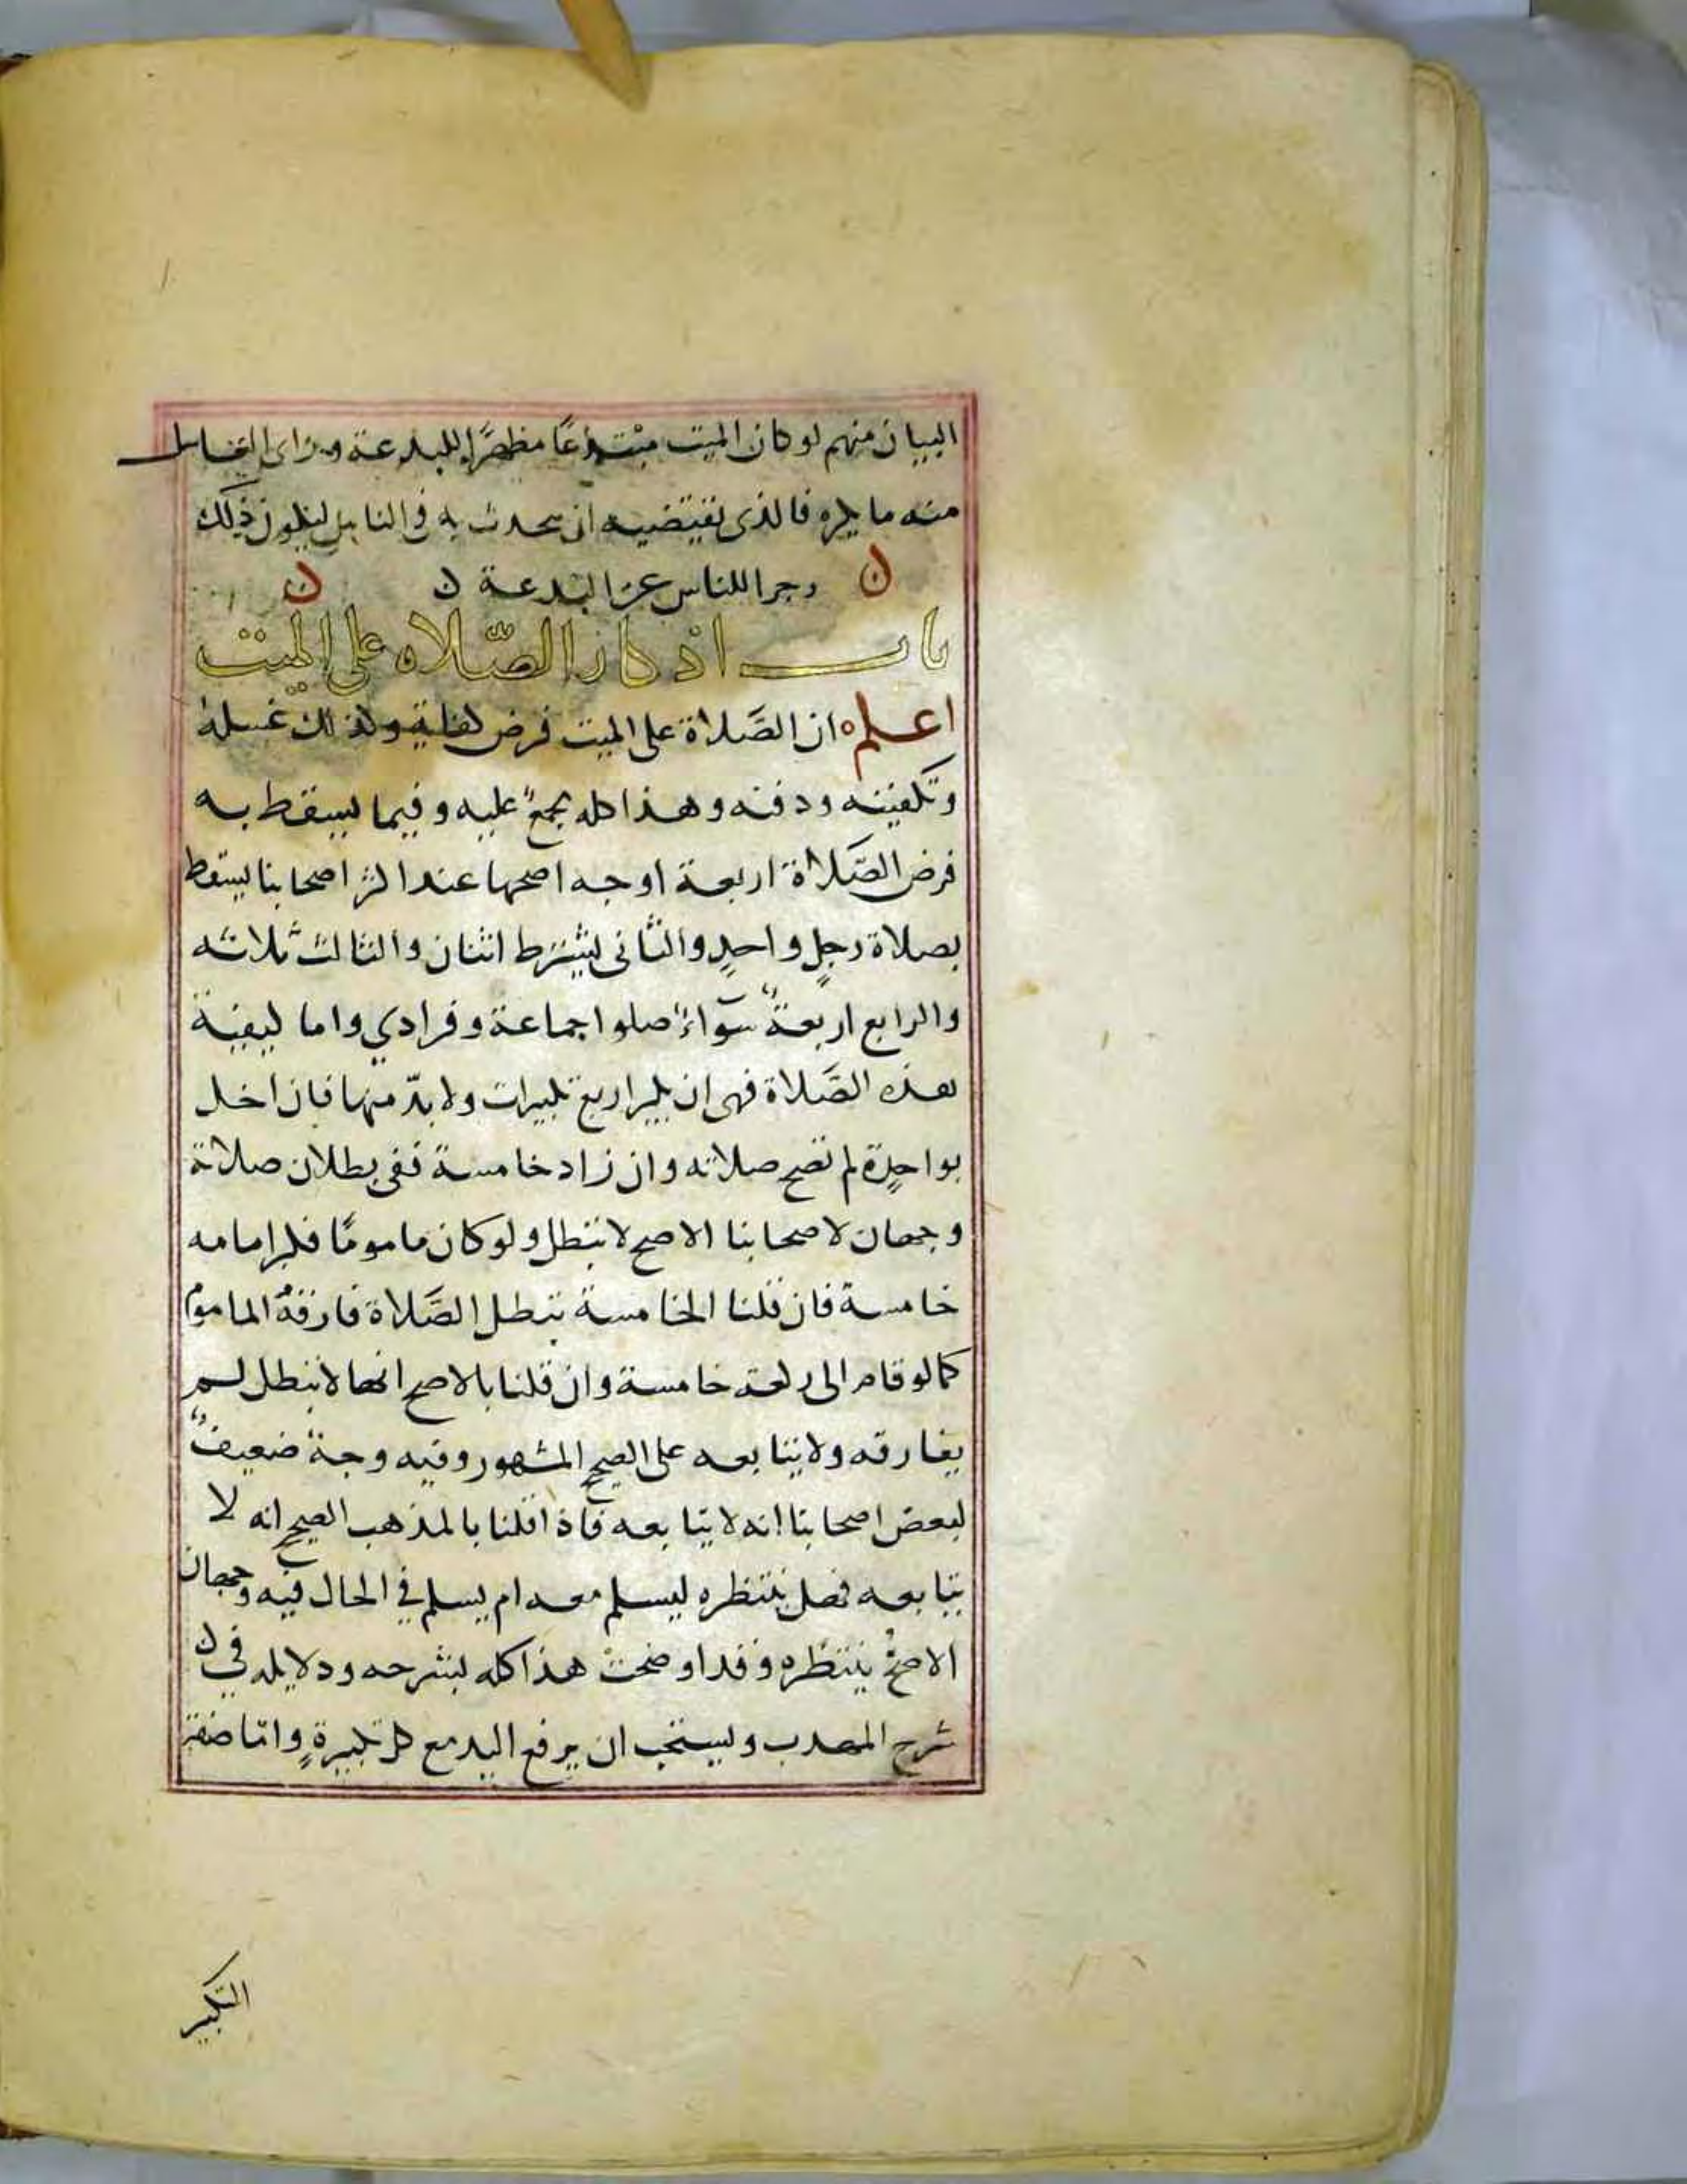 البيان منهم لو كان الميت مبتدعًا مظهرًا للبدعة وراى الغاسل
منه ما يكره فالذى تقتضيه ان يحدث به في الناس ليكون ذلك
زجرا للناس عن البدعة ن
باب اذكار الصّلاه على الميت
اعلم ان الصَّلاة على الميت فرض كفاية وكذلك غسله
وتكفينه ودفنه وهذا كله مجمعٌ عليه وفيما يسقط به
فرض الصَّلاة اربعة اوجه اصحها عند اكثر اصحابنا يسقط
بصلاة رجلٍ واحدٍ والثانى يشترط اثنان والثالث ثلاثه
والرابع اربعةٌ سَوآءٌ صلوا جماعة وفرادي واما كيفية
هذه الصَّلاة فهى ان يكبر اربع تكبيرات ولابدّ منها فان اخل
بواحدٍة لم تصح صلاته وان زاد خامسة ففى بطلان صلاة
وجهان لاصحابنا الاصح لا تبطل ولو كان مامومًا فكبر امامه
خامسة فان قلنا الخامسة تبطل الصَّلاة فارقهُ المامومُ
كما لو قام الى ركعة خامسة وان قلنا بالاصح انها لا تبطل لم
يفارقه ولا يتابعه على الصحيح المشهور وفيه وجهٌ ضعيفٌ
لبعض اصحابنا انه لا يتابعه فاذا قلنا بالمذهب الصحيح انه لا
يتابعه فهل ينتظره ليسلم معه ام يسلم في الحال فيه وجهان
الاصحُّ ينتظره وقد اوضحتُ هذا كله بشرحه ودلايله في ن
شرح المهدب ويستحب ان يرفع اليد مع كل تكبيرةٍ وامّا صفة
التكبير